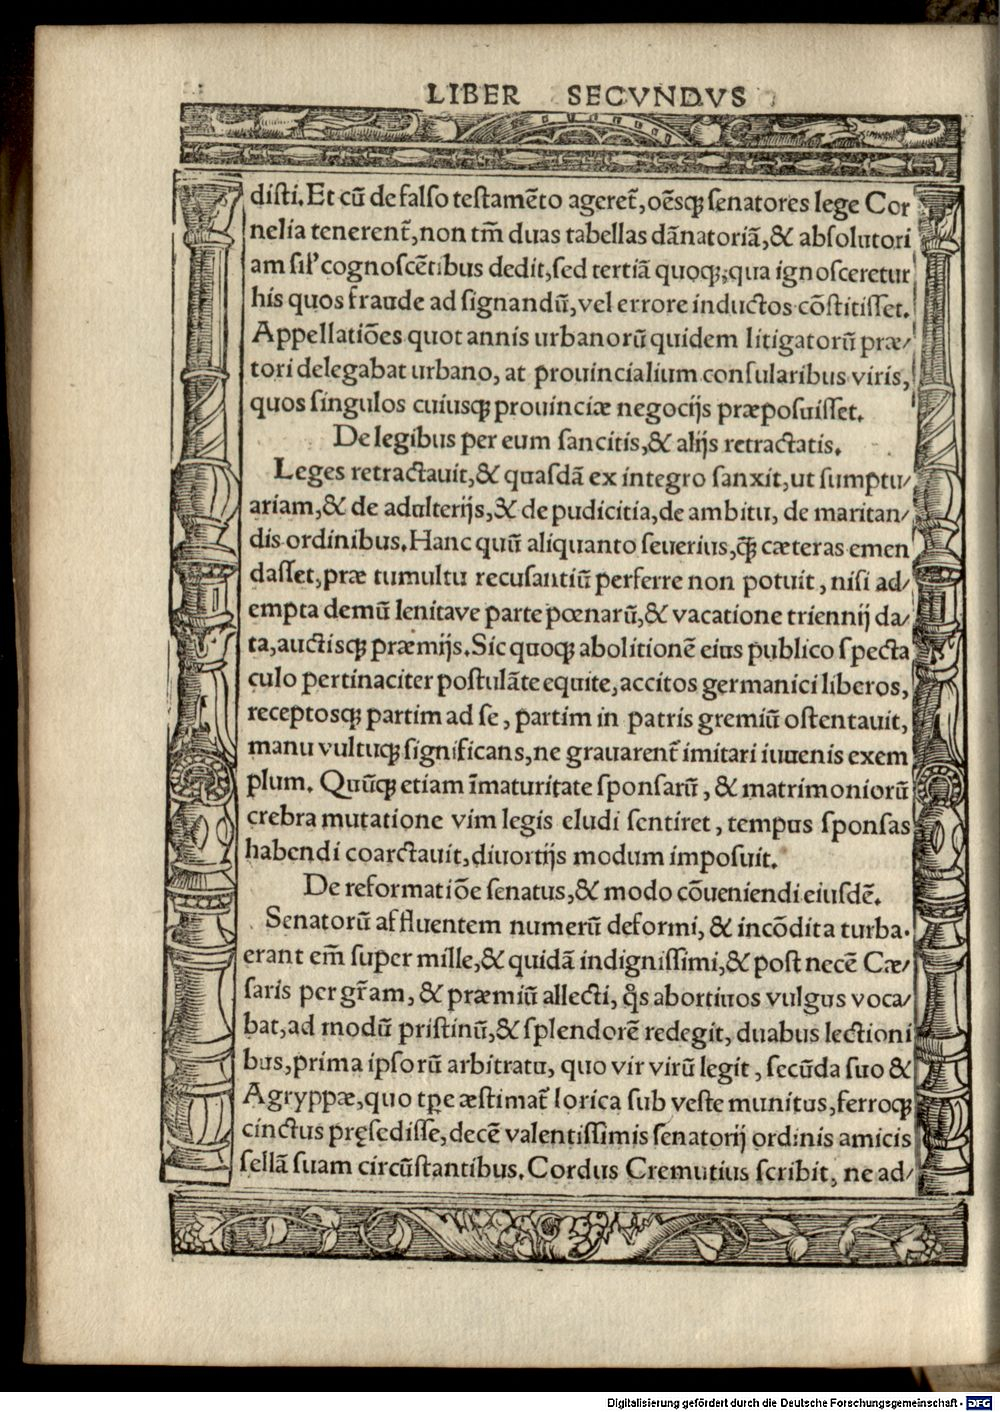 LIBER SECVNDVS
disti. Et cū de falso testamēto ageret̃, oēsq; senatores lege Cor
nelia tenerent̃, non tm̃ duas tabellas dānatoriā, & absolutori
am sil' cognoscētibus dedit, sed tertiā quoq;, qua ignosceretur
his quos fraude ad signandū, vel errore inductos cōstitisset.
Appellatiōes quot annis urbanorū quidem litigatorū præ/
tori delegabat urbano, at prouincialium consularibus viris,
quos singulos cuiusq; prouinciæ negocijs præposuisset.
De legibus per eum sancitis, & alijs retractatis.
Leges retractauit, & quasdā ex integro sanxit, ut sumptu/
ariam, & de adulterijs, & de pudicitia, de ambitu, de maritan/
dis ordinibus. Hanc quū aliquanto seuerius, q̃ cæteras emen
dasset, præ tumultu recusantiū perferre non potuit, nisi ad/
empta demū lenitave parte pœnarū, & vacatione triennij da/
ta, auctisq; præmijs. Sic quoq; abolitionē eius publico specta
culo pertinaciter postulāte equite, accitos germanici liberos,
receptosq; partim ad se, partim in patris gremiū ostentauit,
manu vultuq; significans, ne grauarent̃ imitari iuuenis exem
plum. Quūq; etiam īmaturitate sponsarū, & matrimoniorū
crebra mutatione vim legis eludi sentiret, tempus sponsas
habendi coarctauit, diuortijs modum imposuit.
De reformatiōe senatus, & modo cōueniendi eiusdē.
Senatorū affluentem numerū deformi, & incōdita turba.
erant em̃ super mille, & quidā indignissimi, & post necē Cæ/
saris per gr̃am, & præmiū allecti, q̃s abortiuos vulgus voca/
bat, ad modū pristinū, & splendorē redegit, duabus lectioni
bus, prima ipsorū arbitratu, quo vir virū legit, secūda suo &
Agryppæ, quo tp̃e æstimat̃ lorica sub veste munitus, ferroq;
cinctus pręsedisse, decē valentissimis senatorij ordinis amicis
sellā suam circūstantibus. Cordus Cremutius scribit, ne ad/
Digitalisierung gefördert durch die Deutsche Forschungsgemeinschaft - DFG